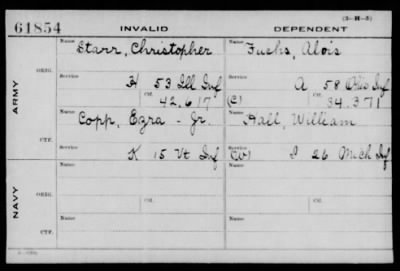 (3-H-5)
61854 INVALID DEPENDENT
ARMY
ORIG.
Name Starr, Christopher
Name Fuchs, Alois
Service H 53 Ill Inf
Service A 58 Ohio Inf
Ctf. 42.617
(C) Ctf. 34.371
CTF.
Name Copp, Ezra - Jr.
Name Hall, William
Service K 15 Vt Inf
Service (W) I 26 Mich Inf
NAVY
ORIG.
Name
Name
Service Ctf.
Service Ctf.
CTF.
Name
Name
Service
Service